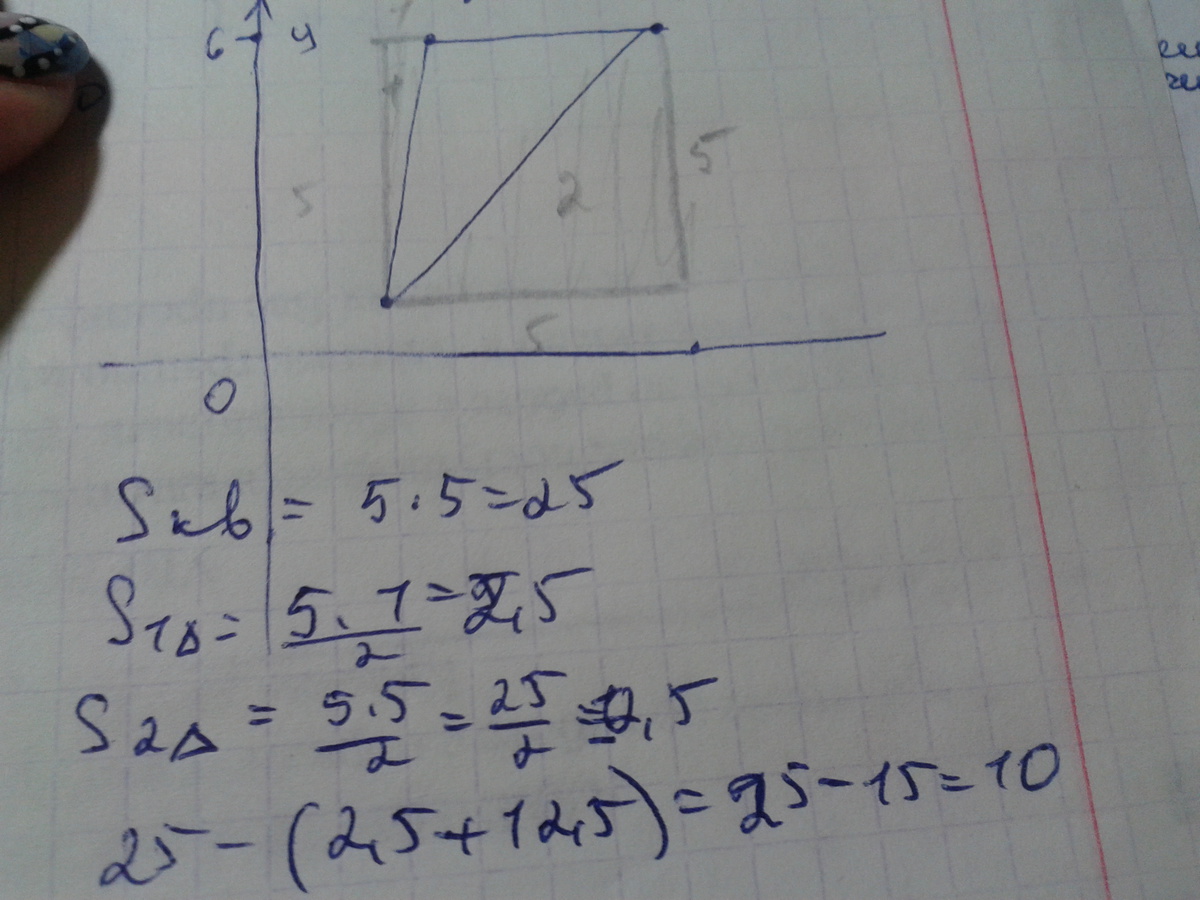 6 y
1
5 2 5
5
0
Sкв = 5·5=25
S1Δ= 5·1/2 =2,5
S2Δ = 5·5/2 = 25/2 =12,5
25 - (2,5+12,5) = 25-15=10